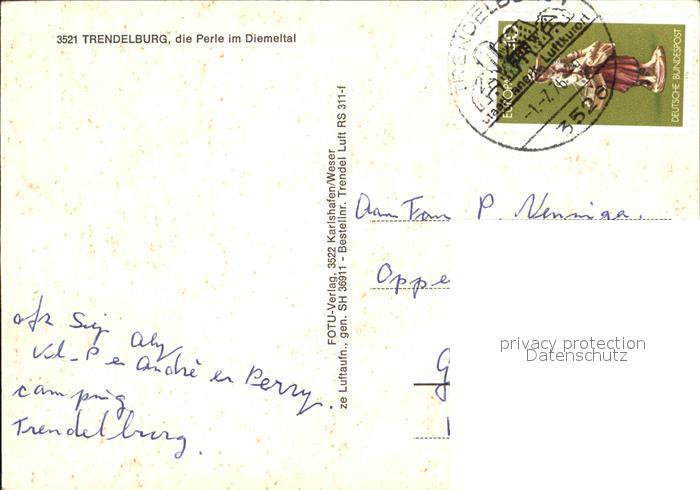 3521 TRENDELBURG, die Perle im Diemeltal
TRENDELBURG
staatl. anerk. Luftkurort
-1.-7.76
3526
EUROPA
DEUTSCHE BUNDESPOST
FOTU-Verlag, 3522 Karlshafen/Weser
ze Luftaufn., gen. SH 36911 - Bestellnr. Trendel Luft RS 311-f
Aan Fam P. Venninga,
Oppe
G
privacy protection
Datenschutz
afz Sig Aly
Vd-P en André en Perry.
camping
Trendelburg.